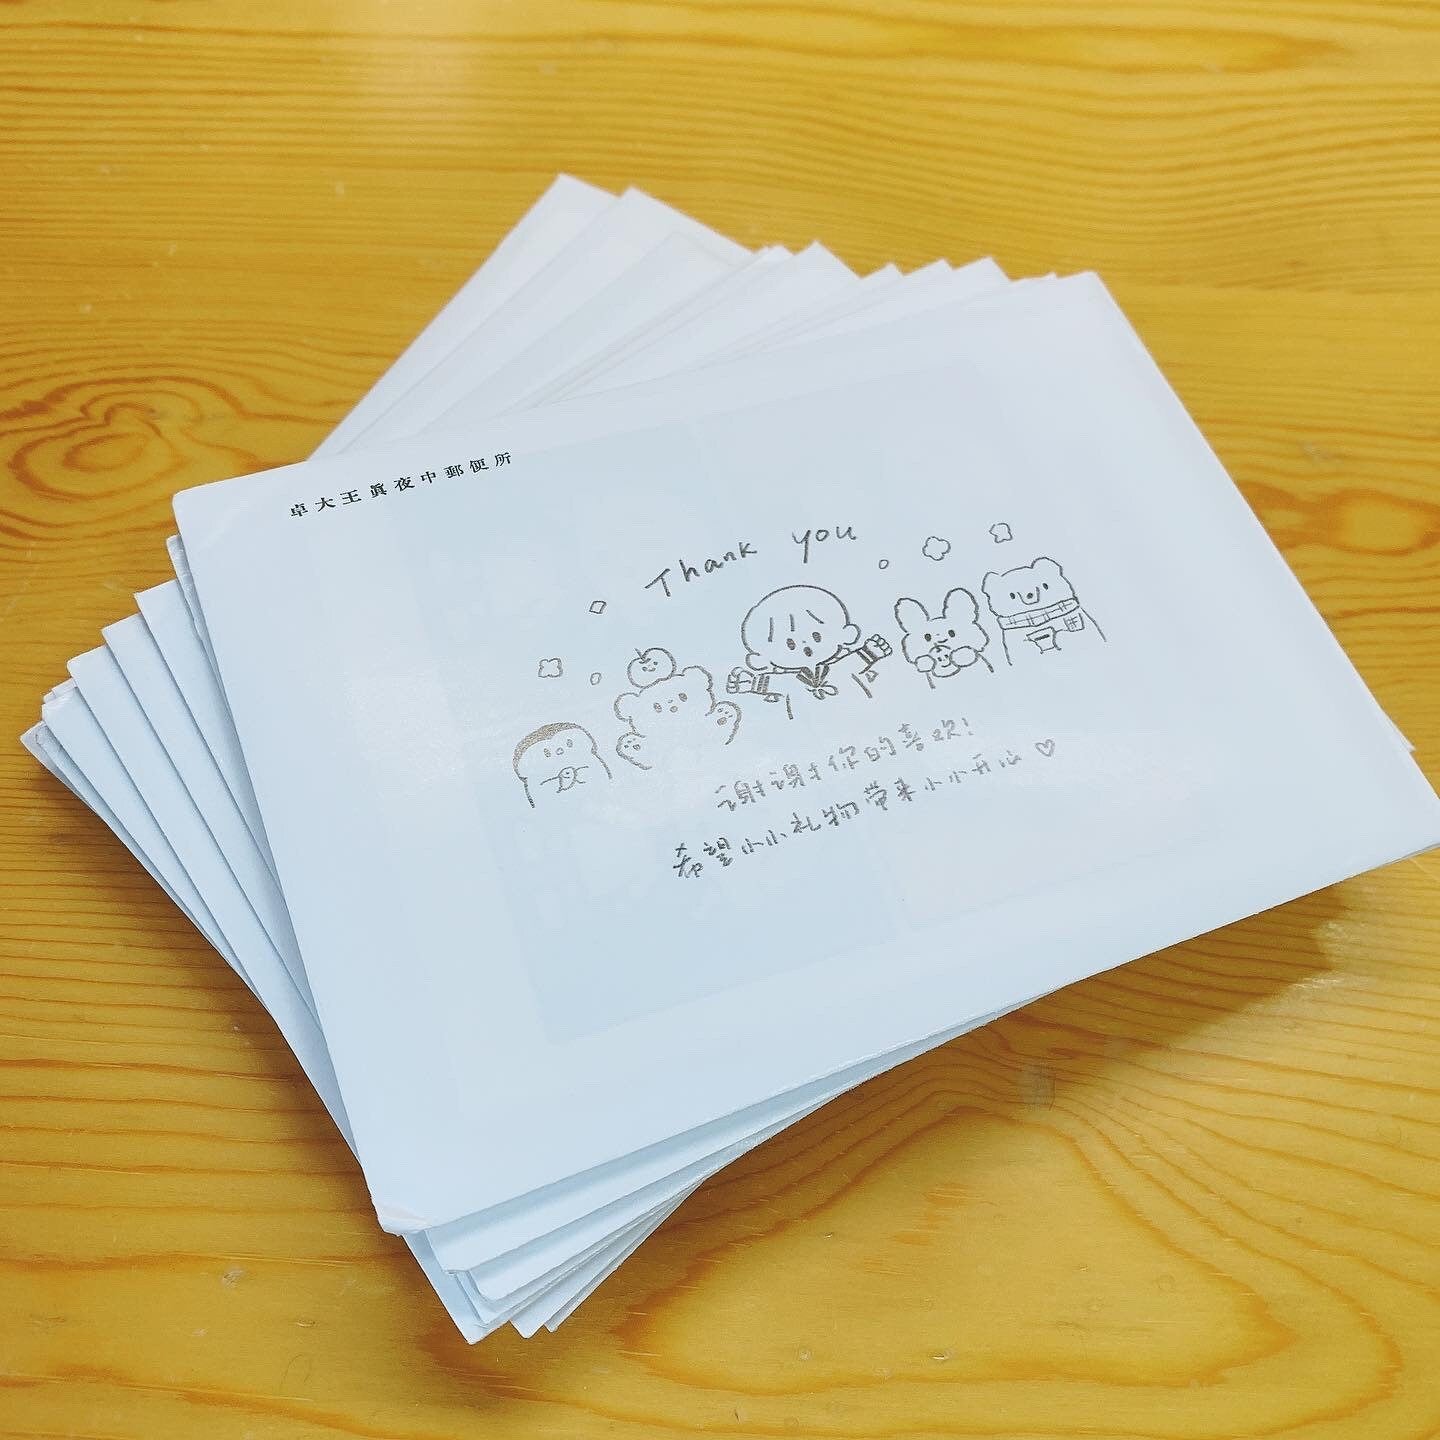 卓大王眞夜中郵便所
Thank you
谢谢你的喜欢!
希望小小礼物带来小小开心♡